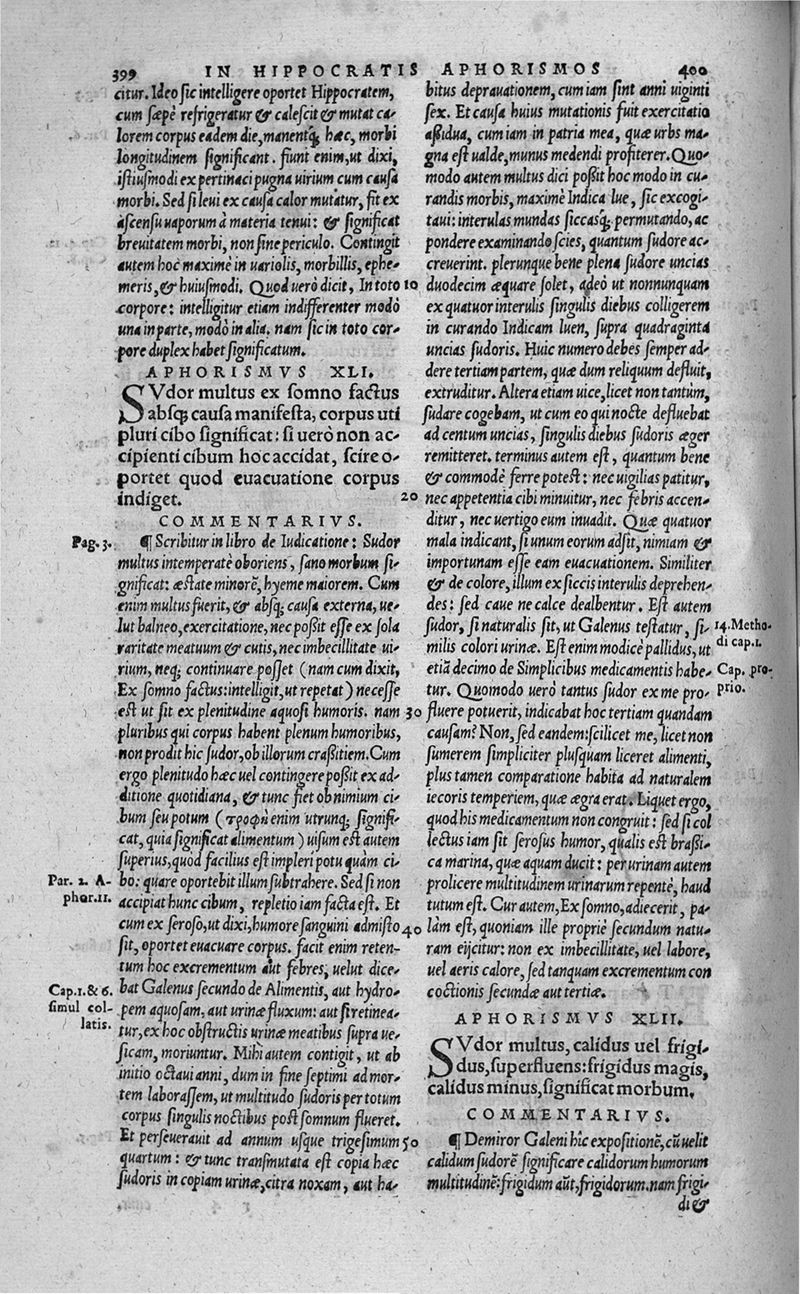 399 IN HIPPOCRATIS APHORISMOS 400
citur. Ideo sic intelligere oportet Hippocratem,
cum sæpè refrigeratur & calescit & mutat ca-
lorem corpus eadem die, manentq́; hæc, morbi
longitudinem significant. fiunt enim, ut dixi,
istiusmodi ex pertinaci pugna uirium cum causa
morbi. Sed si leui ex causa calor mutatur, fit ex
ascensu uaporum à materia tenui: & significat
breuitatem morbi, non sine periculo. Contingit
autem hoc maximè in uariolis, morbillis, ephe-
meris, & huiusmodi. Quod uerò dicit, In toto
corpore: intelligitur etiam indifferenter modò
una in parte, modò in alia. nam sic in toto cor-
pore duplex habet significatum.
APHORISMVS XLI.
SVdor multus ex somno factus
absq; causa manifesta, corpus uti
pluri cibo significat: si uerò non ac-
cipienti cibum hoc accidat, scire o-
portet quod euacuatione corpus
indiget.
COMMENTARIVS.
Pag. 3.
¶ Scribitur in libro de Iudicatione: Sudor
multus intemperatè oboriens, sano morbum si-
gnificat: æstate minorē, hyeme maiorem. Cum
enim multus fuerit, & absq; causa externa, ue-
lut balneo, exercitatione, nec possit esse ex sola
raritate meatuum & cutis, nec imbecillitate ui-
rium, neq; continuare posset (nam cum dixit,
Ex somno factus: intelligit, ut repetat) necesse
est ut sit ex plenitudine aquosi humoris. nam
pluribus qui corpus habent plenum humoribus,
non prodit hic sudor, ob illorum crassitiem. Cum
ergo plenitudo hæc uel contingere possit ex ad-
ditione quotidiana, & tunc fiet ob nimium ci-
bum seu potum (τροφὴ enim utrunq; signifi-
cat, quia significat alimentum) uisum est autem
superius, quod facilius est impleri potu quàm ci-
Par. 2. A-
phor. 11.
bo: quare oportebit illum subtrahere. Sed si non
accipiat hunc cibum, repletio iam facta est. Et
cum ex seroso, ut dixi, humore sanguini admisto
sit, oportet euacuare corpus. facit enim reten-
tum hoc excrementum aut febres, uelut dice-
Cap. 1. & 6.
simul col-
latis.
bat Galenus secundo de Alimentis, aut hydro-
pem aquosam, aut urinæ fluxum: aut si retinea-
tur, ex hoc obstructis urinæ meatibus supra ue-
sicam, moriuntur. Mihi autem contigit, ut ab
initio octaui anni, dum in fine septimi ad mor-
tem laborassem, ut multitudo sudoris per totum
corpus singulis noctibus post somnum flueret.
Et perseuerauit ad annum usque trigesimum
quartum: & tunc transmutata est copia hæc
sudoris in copiam urinæ, citra noxam, aut ha-
10
20
30
40
50
bitus deprauationem, cum iam sint anni uiginti
sex. Et causa huius mutationis fuit exercitatio
assidua, cum iam in patria mea, quæ urbs ma-
gna est ualde, munus medendi profiterer. Quo-
modo autem multus dici possit hoc modo in cu-
randis morbis, maximè Indica lue, sic excogi-
taui: interulas mundas siccasq́; permutando, ac
pondere examinando scies, quantum sudore ac-
creuerint. plerunque bene plena sudore uncias
duodecim æquare solet, adeò ut nonnunquam
ex quatuor interulis singulis diebus colligerem
in curando Indicam luen, supra quadraginta
uncias sudoris. Huic numero debes semper ad-
dere tertiam partem, quæ dum reliquum defluit,
extruditur. Altera etiam uice, licet non tantùm,
sudare cogebam, ut cum eo qui nocte defluebat
ad centum uncias, singulis diebus sudoris æger
remitteret. terminus autem est, quantum bene
& commodè ferre potest: nec uigilias patitur,
nec appetentia cibi minuitur, nec febris accen-
ditur, nec uertigo eum inuadit. Quæ quatuor
mala indicant, si unum eorum adsit, nimiam &
importunam esse eam euacuationem. Similiter
& de colore, illum ex siccis interulis deprehen-
des: sed caue ne calce dealbentur. Est autem
sudor, si naturalis sit, ut Galenus testatur, si-
14. Metho-
di cap. 1.
milis colori urinæ. Est enim modicè pallidus, ut
etiā decimo de Simplicibus medicamentis habe-
Cap. pro-
prio.
tur. Quomodo uerò tantus sudor ex me pro-
fluere potuerit, indicabat hoc tertiam quandam
causam? Non, sed eandem: scilicet me, licet non
sumerem simpliciter plusquam liceret alimenti,
plus tamen comparatione habita ad naturalem
iecoris temperiem, quæ ægra erat. Liquet ergo,
quod his medicamentum non congruit: sed si col
lectus iam sit serosus humor, qualis est brassi-
ca marina, quæ aquam ducit: per urinam autem
prolicere multitudinem urinarum repentè, haud
tutum est. Cur autem, Ex somno, adiecerit, pa-
làm est, quoniam ille propriè secundum natu-
ram eijcitur: non ex imbecillitate, uel labore,
uel aeris calore, sed tanquam excrementum con
coctionis secundæ aut tertiæ.
APHORISMVS XLII.
SVdor multus, calidus uel frigi-
dus, superfluens: frigidus magis,
calidus minus, significat morbum.
COMMENTARIVS.
¶ Demiror Galeni hîc expositionē, cū uelit
calidum sudorē significare calidorum humorum
multitudinē: frigidum aūt, frigidorum. nam frigi-
di &